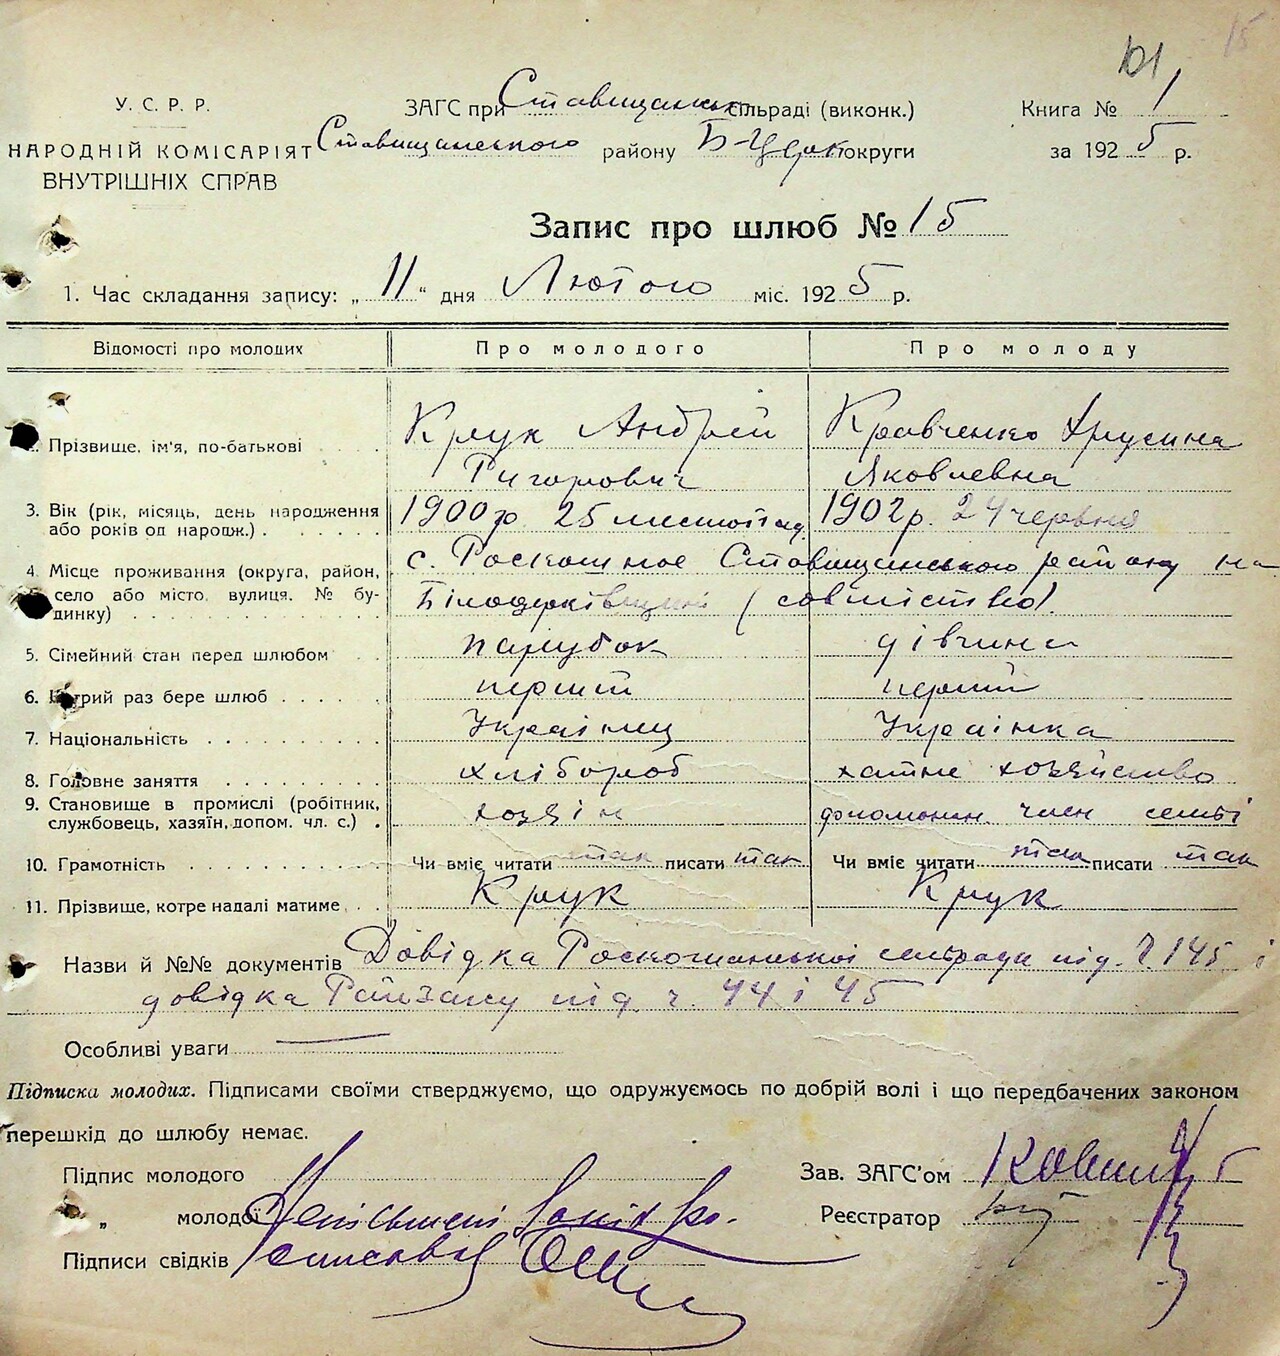 101
15
У. С. Р. Р.
НАРОДНІЙ КОМІСАРІЯТ
ВНУТРІШНІХ СПРАВ
ЗАГС при Ставищанськ сільраді (виконк.)
Ставищанського району Б-Церк округи
Книга № 1
за 1925 р.
Запис про шлюб № 15
1. Час складання запису: „11“ дня Лютого міс. 1925 р.
Відомості про молодих
Про молодого
Про молоду
2. Прізвище, ім'я, по-батькові
Крук Андрій
Ригорович
Кравченко Хрусина
Яковлевна
3. Вік (рік, місяць, день народження
або років од народж.)
1900 р 25 листопад
1902 р. 24 червня
4. Місце проживання (округа, район,
село або місто, вулиця, № бу-
динку)
с. Роскошное Ставищанського району на
Білоцерківщині (совмістно).
5. Сімейний стан перед шлюбом
парубок
дівчина
6. Котрий раз бере шлюб
перший
перший
7. Національність
Українец
Українка
8. Головне заняття
хлібороб
хатне хозяйство
9. Становище в промислі (робітник,
службовець, хазяїн, допом. чл. с.)
хозяін
член семьі
10. Грамотність
Чи вміє читати так писати так
Чи вміє читати так писати так
11. Прізвище, котре надалі матиме
Крук
Крук
Назви й №№ документів Довідка Роскошанської сельради під ч. 145 і
довідка Райзагу під ч. 44 і 45
Особливі уваги
Підписка молодих. Підписами своїми стверджуємо, що одружуємось по добрій волі і що передбачених законом
перешкід до шлюбу немає.
Підпис молодого
„ молодої
Підписи свідків
Зав. ЗАГС'ом
Реєстратор